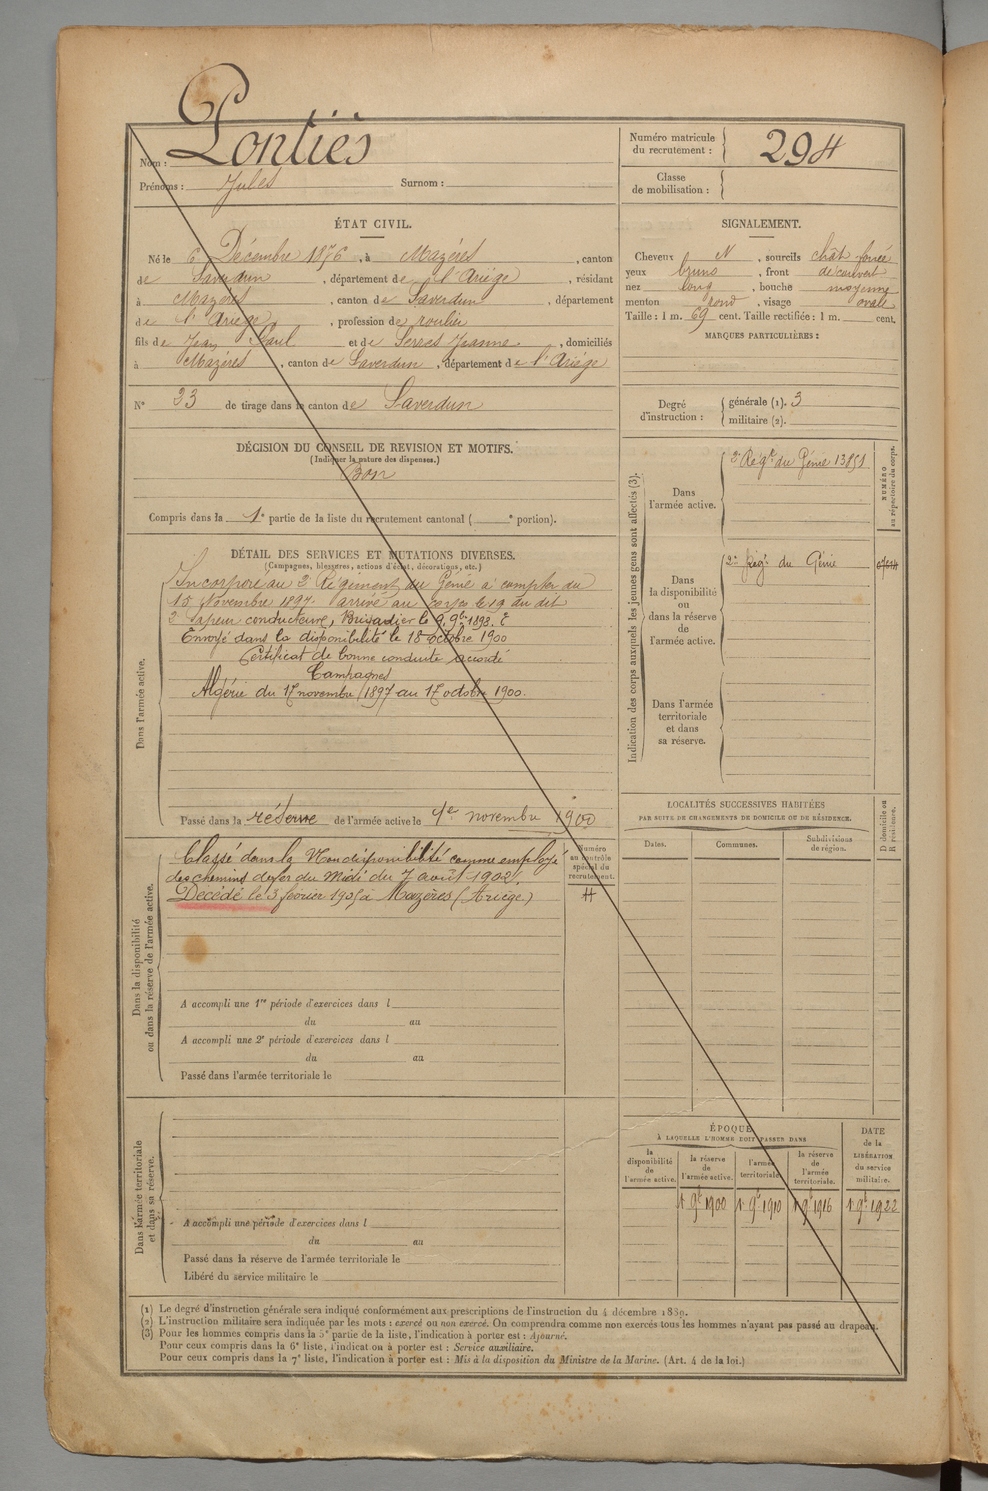 Nom : Pontiès
Prénoms : Jules Surnom :
Numéro matricule du recrutement : 294
Classe de mobilisation :
ÉTAT CIVIL.
Né le 6 Décembre 1876, à Mazères, canton
de Saverdun, département de l'Ariège, résidant
à Mazères, canton de Saverdun, département
de l'Ariège, profession de roulier
fils de Jean Paul et de Serres Jeanne, domiciliés
à Mazères, canton de Saverdun, département de l'Ariège
N° 33 de tirage dans le canton de Saverdun
SIGNALEMENT.
Cheveux N, sourcils chât foncé
yeux bruns, front découvert
nez long, bouche moyenne
menton rond, visage ovale
Taille : 1 m. 69 cent. Taille rectifiée : 1 m. cent.
MARQUES PARTICULIÈRES :
Degré d'instruction : générale (1). 3
militaire (2).
DÉCISION DU CONSEIL DE REVISION ET MOTIFS.
(Indiquer la nature des dispenses.)
Bon
Compris dans la 1e partie de la liste du recrutement cantonal ( e portion).
DÉTAIL DES SERVICES ET MUTATIONS DIVERSES.
(Campagnes, blessures, actions d'éclat, décorations, etc.)
Dans l'armée active.
Incorporé au 2 Régiment du Génie à compter du
15 Novembre 1897. arrivé au corps le 19 du dit
2 sapeur conducteur, Brigadier le 9 9bre 1898.
Envoyé dans la disponibilité le 18 octobre 1900
Certificat de bonne conduite accordé
Campagnes
Algérie du 17 novembre 1897 au 17 octobre 1900.
Passé dans la réserve de l'armée active le 1er novembre 1900
Indication des corps auxquels les jeunes gens sont affectés (3).
NUMÉRO au répertoire du corps.
Dans l'armée active.
2e Régt du Génie 13851
Dans la disponibilité ou dans la réserve de l'armée active.
2e Régt du Génie
Dans l'armée territoriale et dans sa réserve.
Dans la disponibilité ou dans la réserve de l'armée active.
Classé dans la Non disponibilité comme employé
des chemins de fer du Midi du 7 août 1902.
Décédé le 3 février 1905 à Mazères (Ariège)
Numéro au contrôle spécial du recrutement.
A accompli une 1re période d'exercices dans l
du au
A accompli une 2e période d'exercices dans l
du au
Passé dans l'armée territoriale le
LOCALITÉS SUCCESSIVES HABITÉES
PAR SUITE DE CHANGEMENTS DE DOMICILE OU DE RÉSIDENCE.
Dates. Communes. Subdivisions de région.
D domicile ou R résidence.
Dans l'armée territoriale et dans sa réserve.
A accompli une période d'exercices dans l
du au
Passé dans la réserve de l'armée territoriale le
Libéré du service militaire le
ÉPOQUE
À LAQUELLE L'HOMME DOIT PASSER DANS
la disponibilité de l'armée active.
la réserve de l'armée active.
l'armée territoriale.
la réserve de l'armée territoriale.
DATE de la LIBÉRATION du service militaire.
1r 9bre 1900 1r 9bre 1910 1r 9bre 1916 1r 9bre 1922
(1) Le degré d'instruction générale sera indiqué conformément aux prescriptions de l'instruction du 4 décembre 1889.
(2) L'instruction militaire sera indiquée par les mots : exercé ou non exercé. On comprendra comme non exercés tous les hommes n'ayant pas passé au drapeau.
(3) Pour les hommes compris dans la 5e partie de la liste, l'indication à porter est : Ajourné.
Pour ceux compris dans la 6e liste, l'indication à porter est : Service auxiliaire.
Pour ceux compris dans la 7e liste, l'indication à porter est : Mis à la disposition du Ministre de la Marine. (Art. 4 de la loi.)